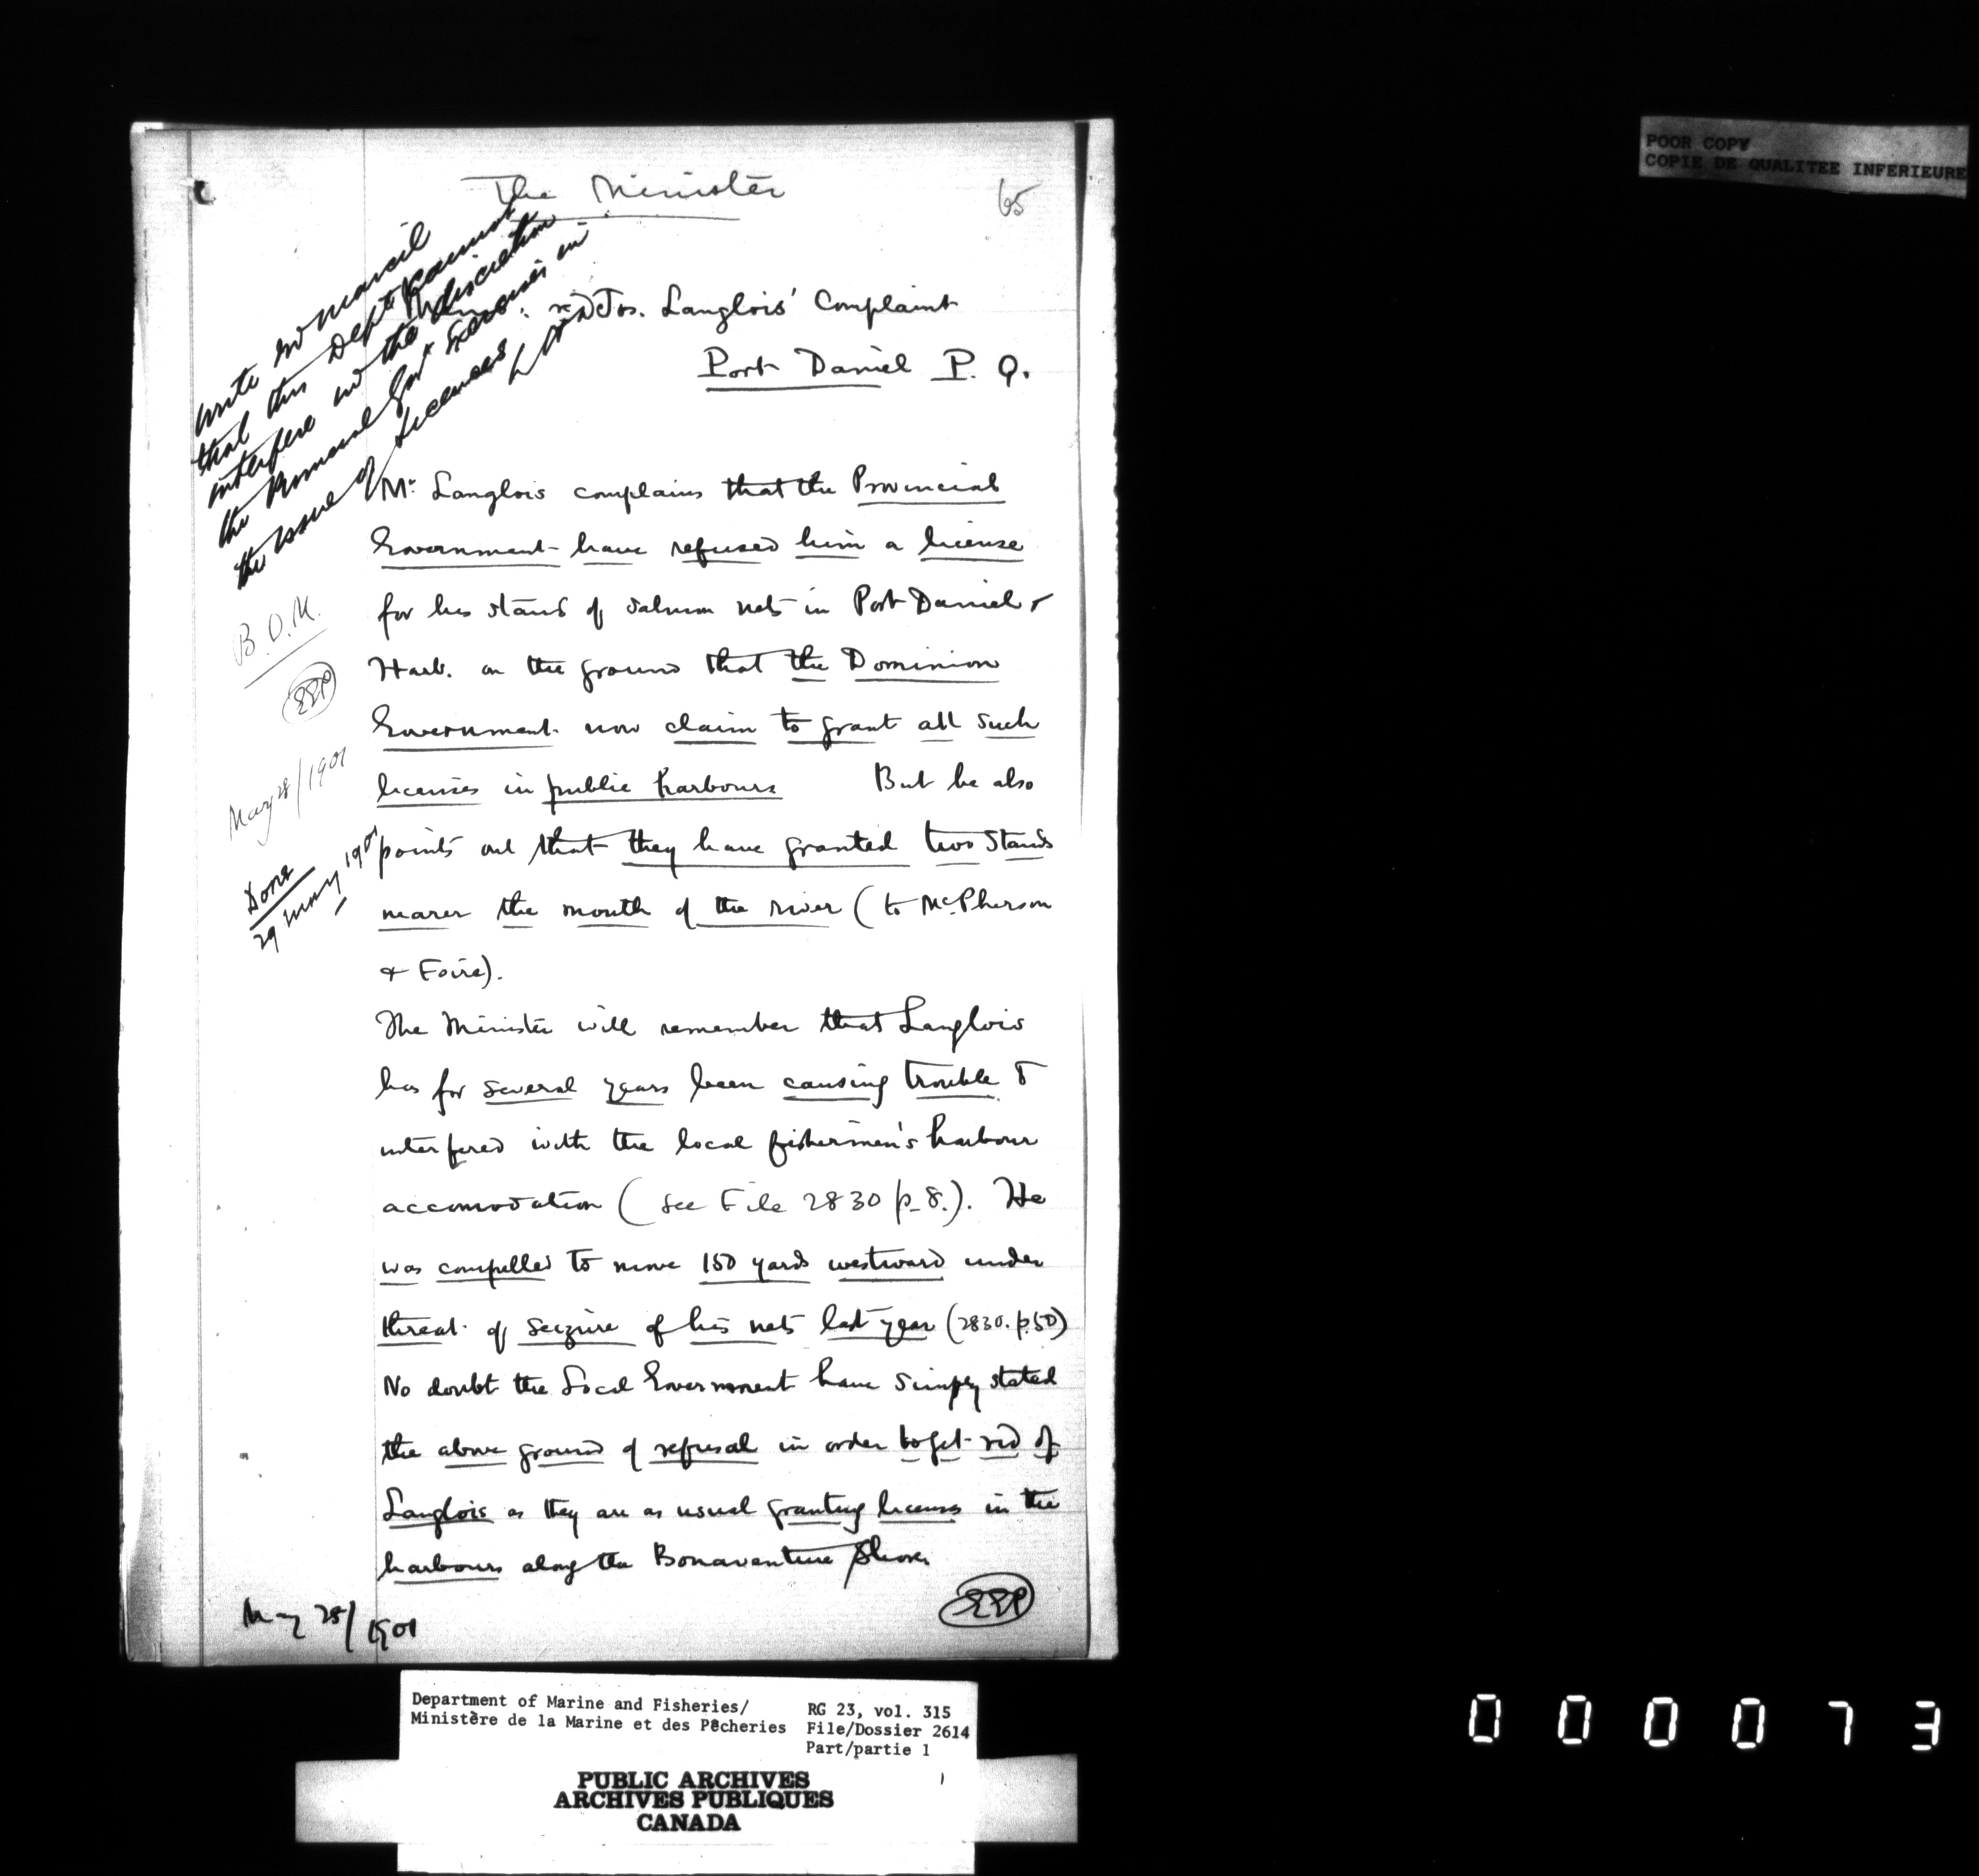 The Minister
65
re Jos. Langlois' Complaint
Port Daniel P. Q.
write
that this Dept cannot
interfere in the discretion
the Provincial Gov't exercises in
the issue of licenses
B.O.M.
EEP
May 28/1901
Done
29 May 1901
Mr. Langlois complains that the Provincial
Government have refused him a license
for his stand of salmon nets in Port Daniel
Harb. on the ground that the Dominion
Government now claim to grant all such
licenses in public harbours But he also
points out that they have granted two stands
nearer the mouth of the river (to McPherson
&
The Minister will remember that Langlois
has for several years been causing trouble &
interfered with the local fishermen's harbour
accomodation (see File 2830 p. 8.). He
was compelled to move 150 yards westward under
threat of seizure of his nets last year (2830. p.50)
No doubt the Local Government have simply stated
the above ground of refusal in order to get rid of
Langlois as they are as usual granting licenses in the
harbours along the Bonaventure Shore.
EEP
May 28/1901
POOR COPY
COPIE DE QUALITEE INFERIEURE
Department of Marine and Fisheries/
Ministère de la Marine et des Pêcheries
RG 23, vol. 315
File/Dossier 2614
Part/partie 1
PUBLIC ARCHIVES
ARCHIVES PUBLIQUES
CANADA
000073